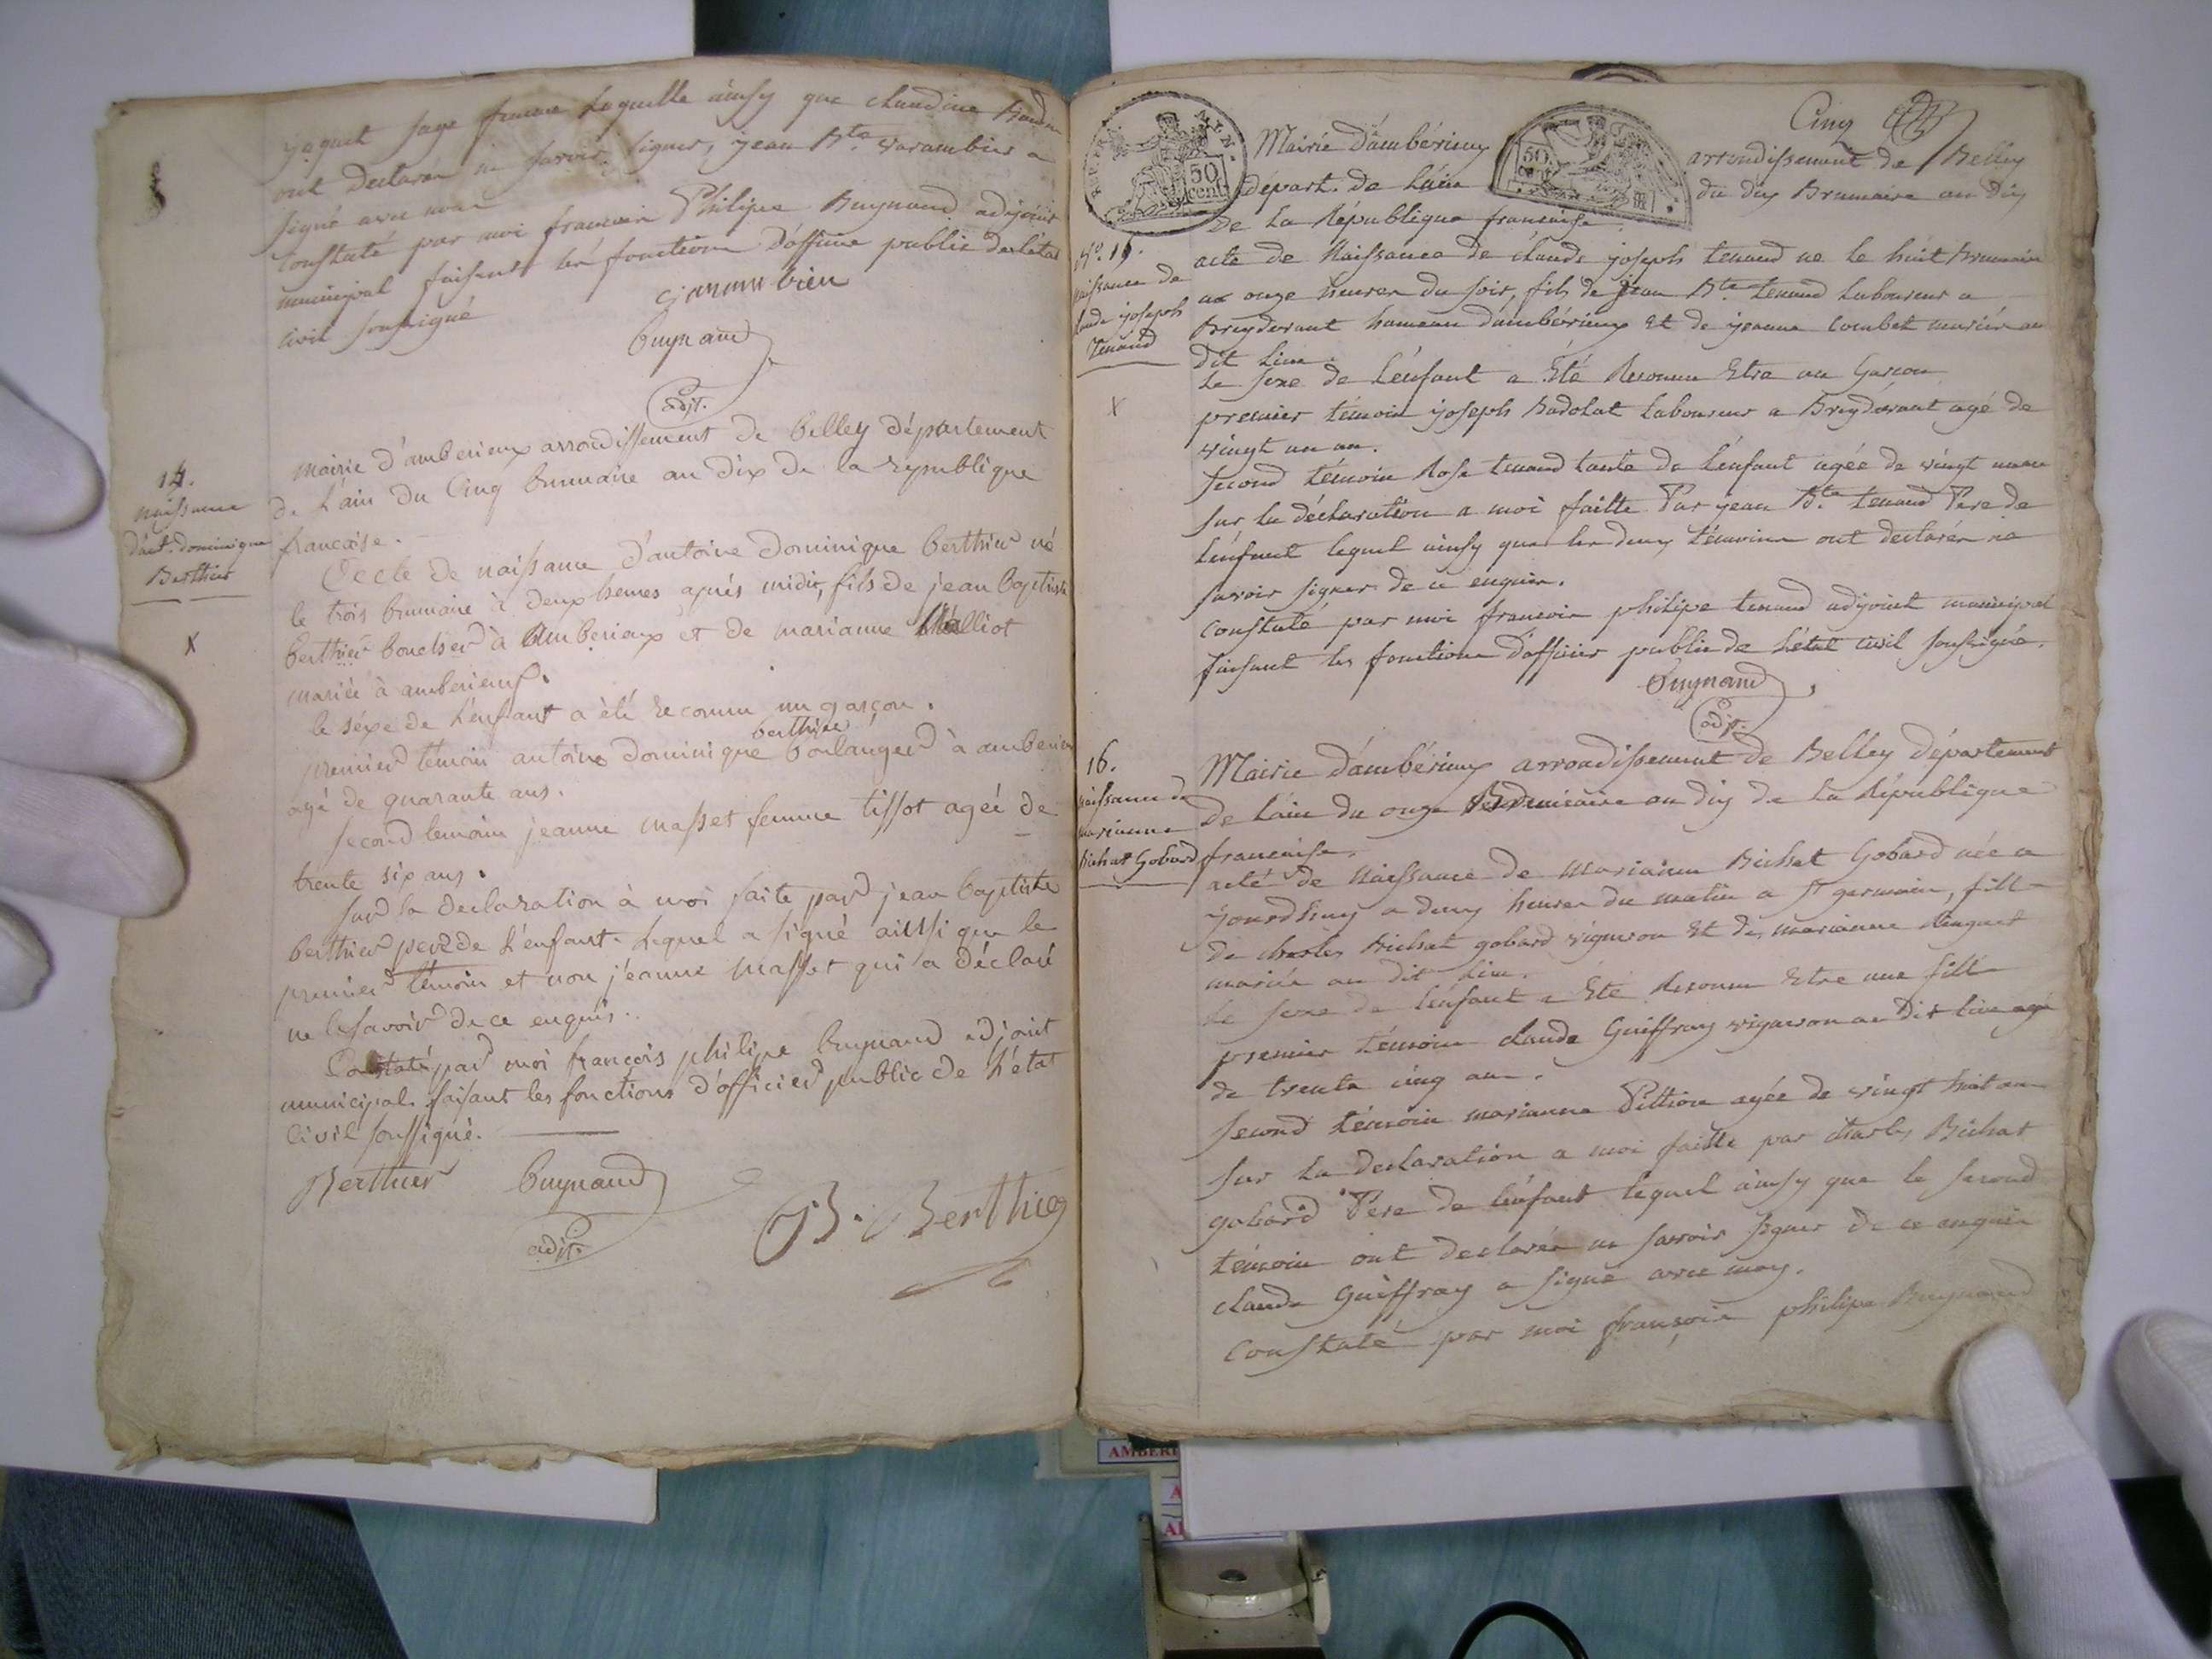 jaquet sage femme laquelle ainsy que claudine
ont declarés ne savoir signer, jean Bte varambier a
signé avec moi
Constaté par moi francois Philipe Buynand adjoint
municipal faisant les fonctions d'officier public de l'état
civil soussigné
Buynand
adjt.
14.
naissance
d'ant. dominique
Berthier
X
mairie d'amberieux arrondissement de belley département
de l'ain du Cinq brumaire an dix de la republique
francaise.
Acte de naissance d'antoine dominique berthier né
le trois brumaire à deux heures après midi, fils de jean baptiste
berthier boucher à amberieux et de marianne
mariés à amberieux.
le séxe de l'enfant a été reconnu un garçon.
berthier
premier temoin antoine dominique boulanger à amberieux
agé de quarante ans.
second temoin jeanne masset femme tissot agée de
trente six ans.
sur la declaration à moi faite par jean baptiste
berthier pere de l'enfant lequel a signé aissi que le
premier témoin et non jeanne masset qui a déclaré
ne le savoir de ce enquis.
Constaté par moi françois philipe buynand adjoint
municipal faisant les fonctions d'officier public de l'état
civil soussigné.
Berthier Buynand JB. Berthier
adjt.
Cinq
REP. FRA.
50 cent.
50
Mairie d'ambérieux arrondissement de Belley
départ. de l'ain du dix Brumaire an dix
de la République francaise.
No. 15.
naissance de
claude joseph
Tenand
X
acte de Naissance de claude joseph tenand ne le huit Brumaire
a onze heures du soir, fils de jean Bte tenand laboureur a
Breydevant hameau d'ambérieux et de jeanne Combet mariés au
dit lieu.
le sexe de l'énfant a été Reconnu Etre un Garcon
premier témoin joseph Badolat laboureur a Breydevant agé de
vingt un an.
second témoin Rose tenand tante de l'énfant agée de vingt
sur la déclaration a moi faitte Par jean Bte tenand Pere de
l'énfant lequel ainsy que les deux témoins ont declarés ne
savoir signer de ce enquis.
Constaté par moi francois philipe tenand adjoint municipal
faisant les fonctions d'officier public de l'état civil soussigné.
Buynand
adjt.
16.
naissance de
marianne
bichat Gobard
Mairie d'ambérieux arrondissement de Belley département
de l'ain du onze Brumaire an dix de la République
francaise.
acte de Naissance de Marianne Bichat Gobard née a
jourdhuy a deux heures du matin a St germain, fille
de charles Bichat gobard vigneron et de marianne
mariés au dit lieu.
le sexe de l'énfant a été Reconnu Etre une fille
premier témoin claude Guiffray vigneron au dit lieu agé
de trente cinq ans.
second témoin marianne Pittion agée de vingt huit ans
sur la declaration a moi faitte par charles Bichat
gobard Pere de l'énfant lequel ainsy que le second
témoin ont declarés ne savoir signer de ce enquis
claude Guiffray a signé avec moy.
Constaté par moi françois philipe Buynand
AMBERI